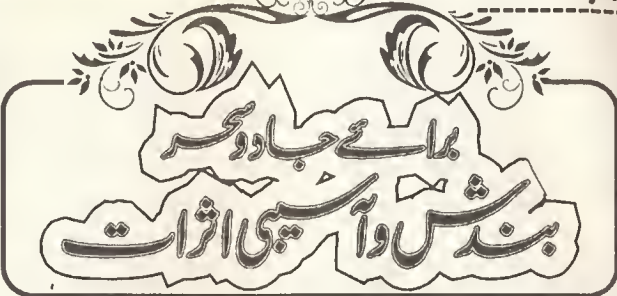 برائے جادو سحر
بندش و آسیبی اثرات